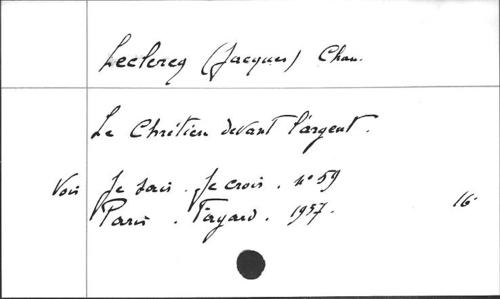 Leclercq (Jacques) Chan.
Le Chrétien devant l'argent.
Voir Je sais. Je crois. n° 59
Paris. Fayard. 1957. 16°